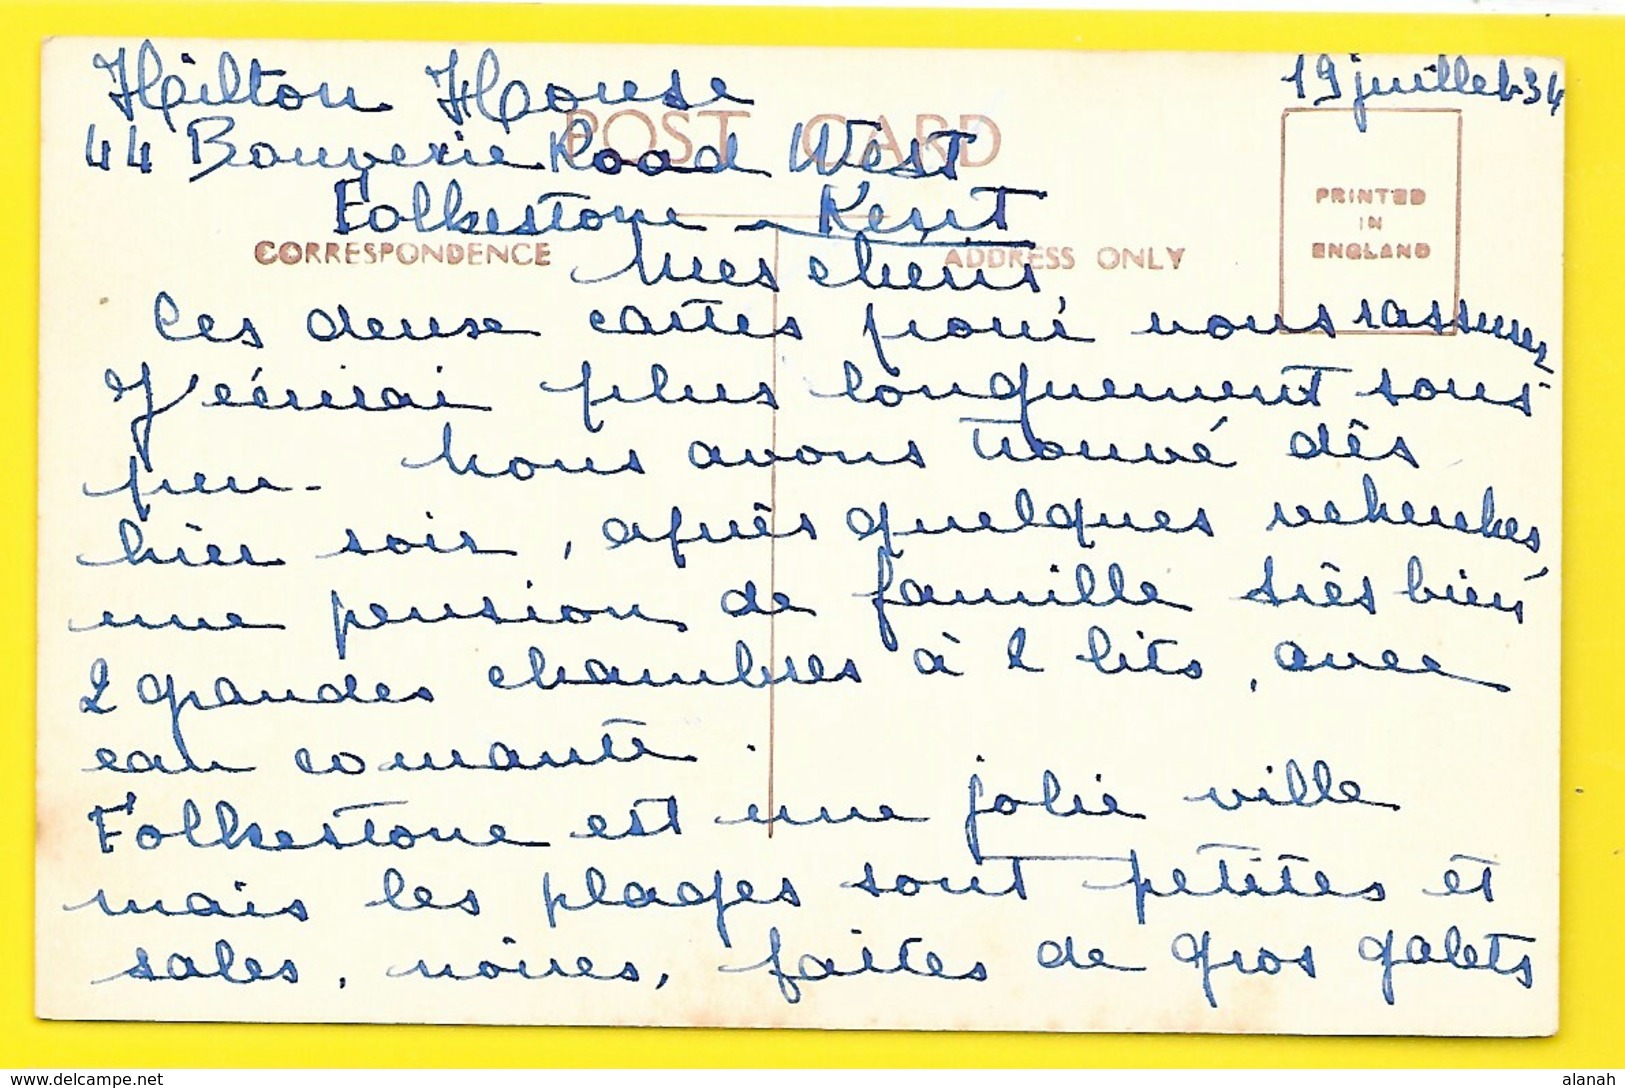 Hilton House
19 juillet 34
POST CARD
44 Bouverie Road West
Folkestone - Kent
PRINTED
IN
ENGLAND
CORRESPONDENCE
ADDRESS ONLY
Mes chers,
Ces deux cartes pour vous rassurer
J'écrirai plus longuement sous
peu - Nous avons trouvé dès
hier soir, après quelques recherches
une pension de famille très bien
2 grandes chambres à 2 lits, avec
eau courante.
Folkestone est une jolie ville
mais les plages sont petites et
sales, noires, faites de gros galets
alanah